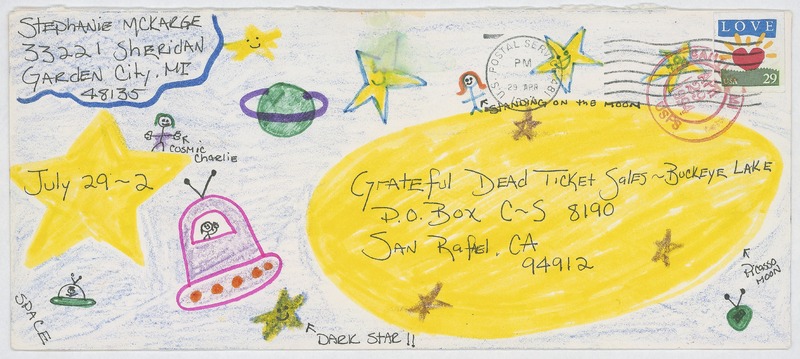 Stephanie McKarge
33221 Sheridan
Garden City, MI
48135
U.S. POSTAL SERVICE
PM
29 APR
481
LOVE
29
USA
Standing on the Moon
Cosmic
Charlie
July 29~2
Grateful Dead Ticket Sales~Buckeye Lake
P.O. Box C~S 8190
San Rafael, CA
94912
Picasso
Moon
SPACE
Dark Star!!